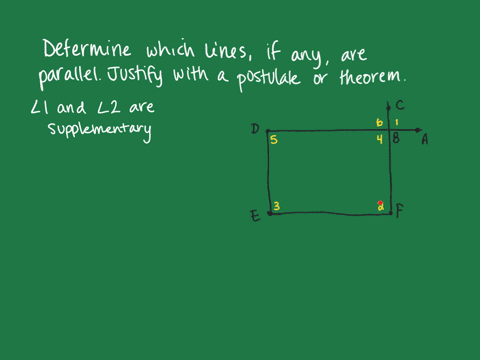 Determine which lines, if any, are
parallel. Justify with a postulate or theorem.
∠1 and ∠2 are
supplementary
C
D 6 1
5 4 B A
3 2
E F